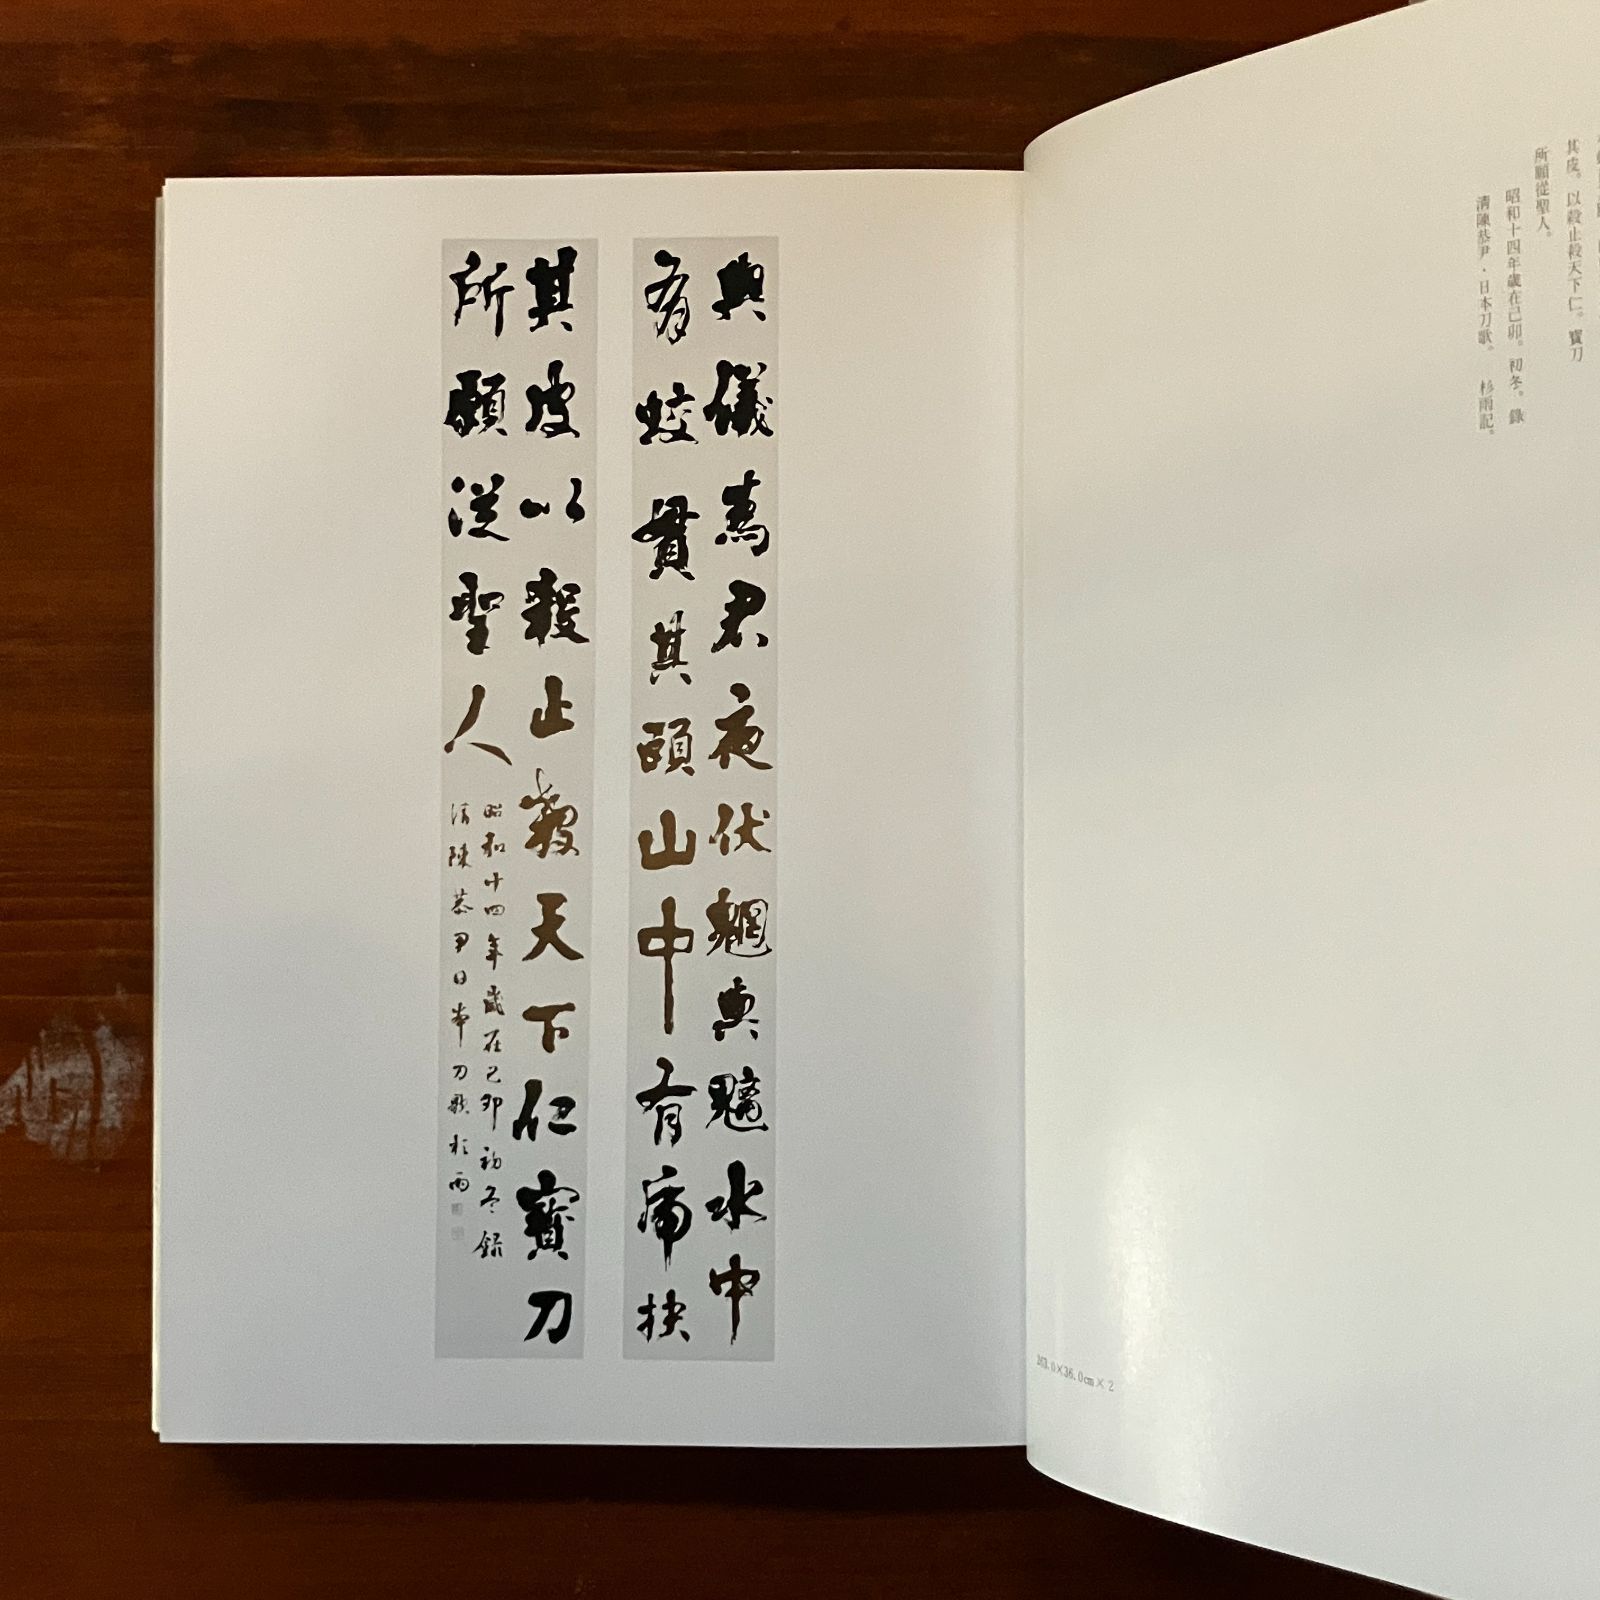 其皮。以殺止殺天下仁。寶刀
所願從聖人。
昭和十四年歲在己卯。初冬。錄
清陳恭尹・日本刀歌。 杉雨記。
與儀為君夜伏魍與魑水中
有蛟貫其頤山中有虎抉
其皮以殺止殺天下仁寶刀
所願從聖人
昭和十四年歲在己卯初冬錄
清陳恭尹日本刀歌 杉雨
×36.0cm×2